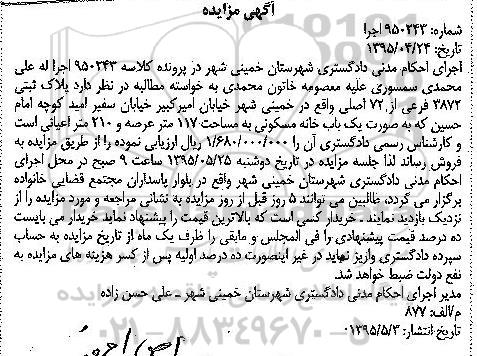 آگهی مزایده
شماره: ۹۵۰۲۴۳ اجرا
تاریخ: ۱۳۹۵/۰۴/۲۴
اجرای احکام مدنی دادگستری شهرستان خمینی شهر در پرونده کلاسه ۹۵۰۲۴۳ اجرا له علی
محمدی سمسوری علیه معصومه خاتون محمدی به خواسته مطالبه در نظر دارد پلاک ثبتی
۳۸۷۲ فرعی از ۷۲ اصلی واقع در خمینی شهر خیابان امیرکبیر خیابان سفیر امید کوچه امام
حسین که به صورت یک باب خانه مسکونی به مساحت ۱۱۷ متر عرصه و ۲۱۰ متر اعیانی است
و کارشناس رسمی دادگستری آن را ۱/۶۸۰/۰۰۰/۰۰۰ ریال ارزیابی نموده را از طریق مزایده به
فروش رساند لذا جلسه مزایده در تاریخ دوشنبه ۱۳۹۵/۰۵/۲۵ ساعت ۹ صبح در محل اجرای
احکام مدنی دادگستری شهرستان خمینی شهر واقع در بلوار پاسداران مجتمع قضایی خانواده
برگزار می گردد، طالبین می توانند ۵ روز قبل از روز مزایده به نشانی مراجعه و مورد مزایده را از
نزدیک بازدید نمایند. خریدار کسی است که بالاترین قیمت را پیشنهاد نماید خریدار می بایست
ده درصد قیمت پیشنهادی را فی المجلس و مابقی را ظرف یک ماه از تاریخ مزایده به حساب
سپرده دادگستری واریز نماید در غیر اینصورت ده درصد اولیه پس از کسر هزینه های مزایده به
نفع دولت ضبط خواهد شد.
مدیر اجرای احکام مدنی دادگستری شهرستان خمینی شهر ـ علی حسن زاده
م/الف: ۸۷۷
تاریخ انتشار: ۱۳۹۵/۵/۳
۰۲۱-۸۸۳۴۹۶۷۰-۵